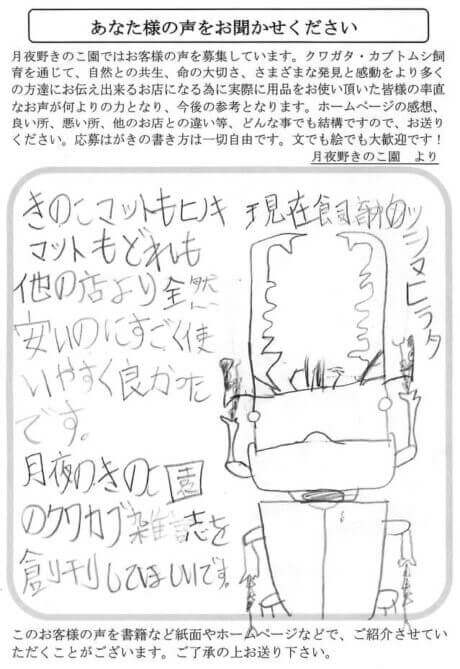 あなた様の声をお聞かせください
月夜野きのこ園ではお客様の声を募集しています。クワガタ・カブトムシ飼
育を通じて、自然との共生、命の大切さ、さまざまな発見と感動をより多く
の方達にお伝え出来るお店になる為に実際に用品をお使い頂いた皆様の率直
なお声が何よりの力となり、今後の参考となります。ホームページの感想、
良い所、悪い所、他のお店との違い等、どんな事でも結構ですので、お送り
ください。応募はがきの書き方は一切自由です。文でも絵でも大歓迎です！
月夜野きのこ園　より
きのこマットもヒノキ
マットもどれも
他の店より全然
安いのにすごく使
いやすく良かった
です。
月夜のきのこ園
のクワカブ雑誌を
創刊してほしいです。
現在飼育のツシマヒラタ
このお客様の声を書籍など紙面やホームページなどで、ご紹介させてい
ただくことがございます。ご了承の上お送り下さい。